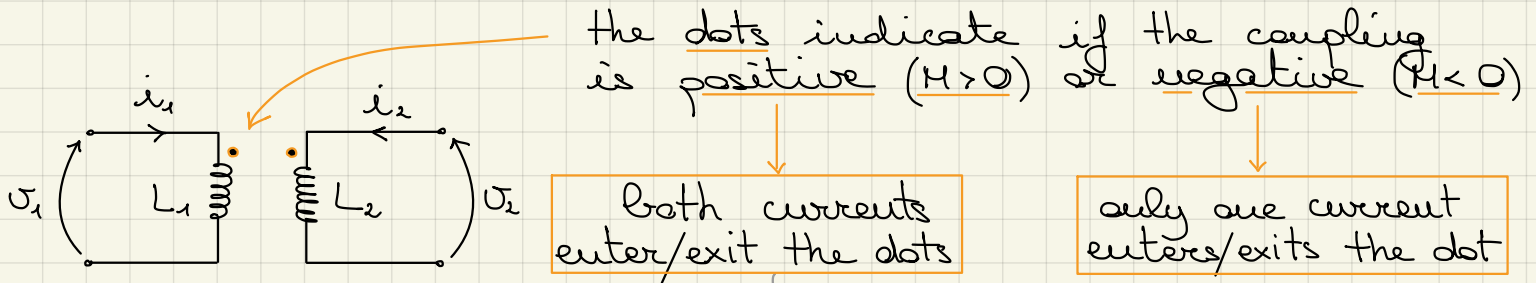 the dots indicate if the coupling
is positive (M>0) or negative (M<0)
i₁
i₂
v₁
L₁
L₂
v₂
both currents
enter/exit the dots
only one current
enters/exits the dot